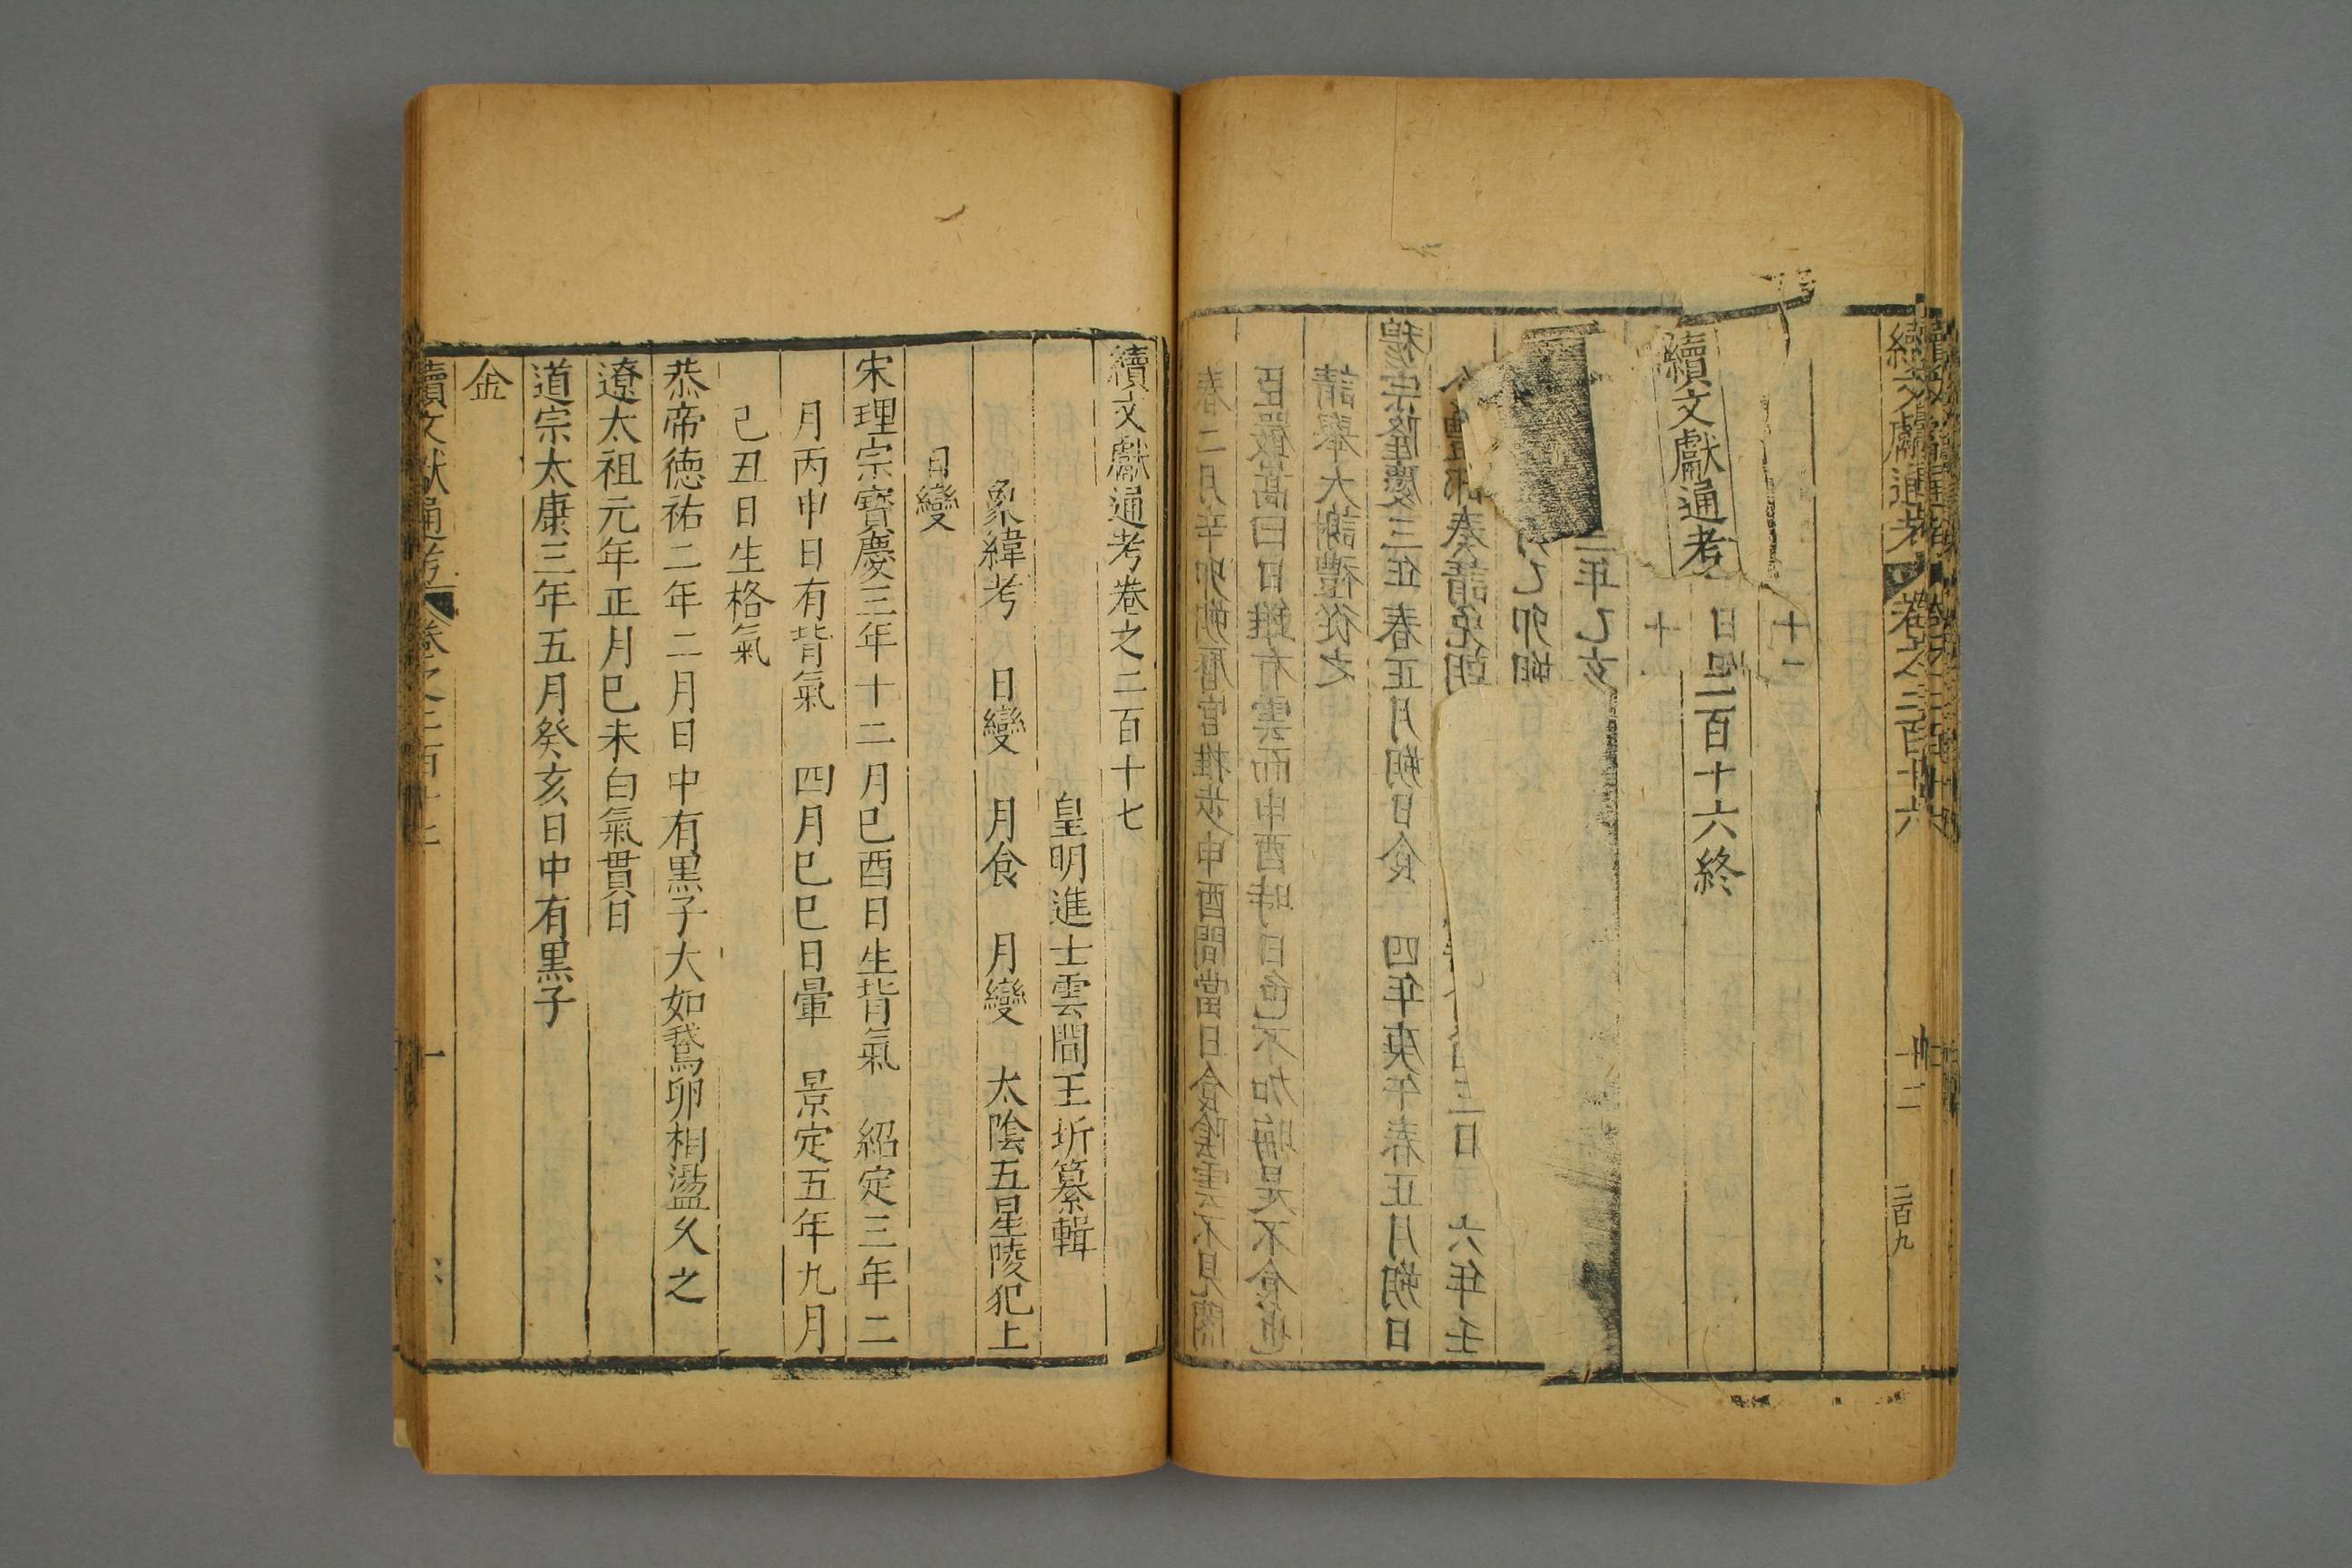 續文獻通考卷之二百十六
十二
二百九
十一
續文獻通考
日
二百十六終
十
二年乙亥
乙卯朔
奏請免朝
六年壬
穆宗隆慶三年春正月朔日食
四年庚午春正月朔日
請舉大謝禮從之
臣嚴嵩曰日雖有雲而申酉時日色不加晦是不食也
春二月辛卯朔曆官推步申酉間當日食陰雲不見
續文獻通考卷之二百十七
皇明進士雲間王圻纂輯
象緯考 日變 月食 月變 太陰五星陵犯上
日變
宋理宗寶慶三年十二月巳酉日生背氣 紹定三年二
月丙申日有背氣 四月巳巳日暈 景定五年九月
己丑日生格氣
恭帝德祐二年二月日中有黑子大如鵞卵相盪久之
遼太祖元年正月巳未白氣貫日
道宗太康三年五月癸亥日中有黑子
金
續文獻通考 卷之二百十七
一